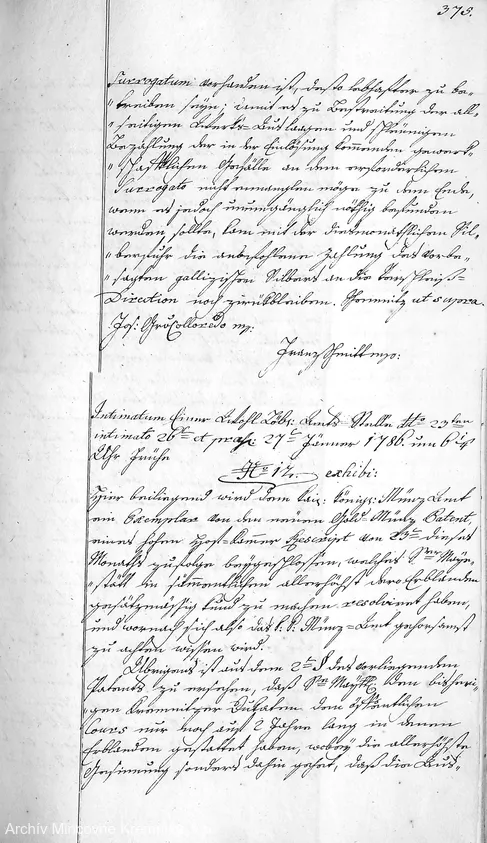 375.
Surrogatum vorhanden ist, desto lebhafter zu be-
" treiben seyn; damit es zu Bestreitung der all-
" seitigen Werks-Auslaagen und schleunigen
Bezahlung der in der Einlösung kommenden gewerk-
" schaftlichen Gefälle an dem erforderlichen
" Surrogato nicht ermanglen möge zu dem Ende,
wenn es jedoch unumgänglich nöthig befunden
werden sollte, kan mit der diesmonathlichen Sil-
" berfuhr die anbefohlene Zahlung des vorbe-
" sagten gallizischen Silbers an die Verschleiß-
Direction noch zurückbleiben. Schemnitz ut supra.
Jos: Gr: Colloredo mp:
Franz Schmitt mpo:
Intimatum Einer Wohl Löbl: Amts-Stelle Ho 23ten
intimato 26ten et praes: 27ten Jänner 1786. um 6¼
Uhr Frühe
No 12. exhibi:
Hier beiliegend wird dem kais: königl: Münz Amt
ein Exemplar von dem neuen Gold-Münz Patent,
eines hohen Hof-Kamer Rescript von 13ten dieses
Monats zufolge beygeschlossen, welches Sr Maye-
" stätt in sämmentlichen allerhöchst dero Erblanden
gesätzmässig kund zu machen resolviret haben,
und wornach sich also das k: k: Münz-Amt gehorsamst
zu achten wissen wird.
Übrigens ist aus dem 2ten § des vorliegenden
Patents zu ersehen, daß Sr Maytt den bisheri-
" gen Kremnitzer Dukaten dem öffentlichen
Cours nur noch auf 2 Jahre lang in denen
Erblanden gestattet haben, wobey die allerhöchste
Gesinnung sonders dahin gehet, daß die Aus-
Archív Mincovne Kremnica